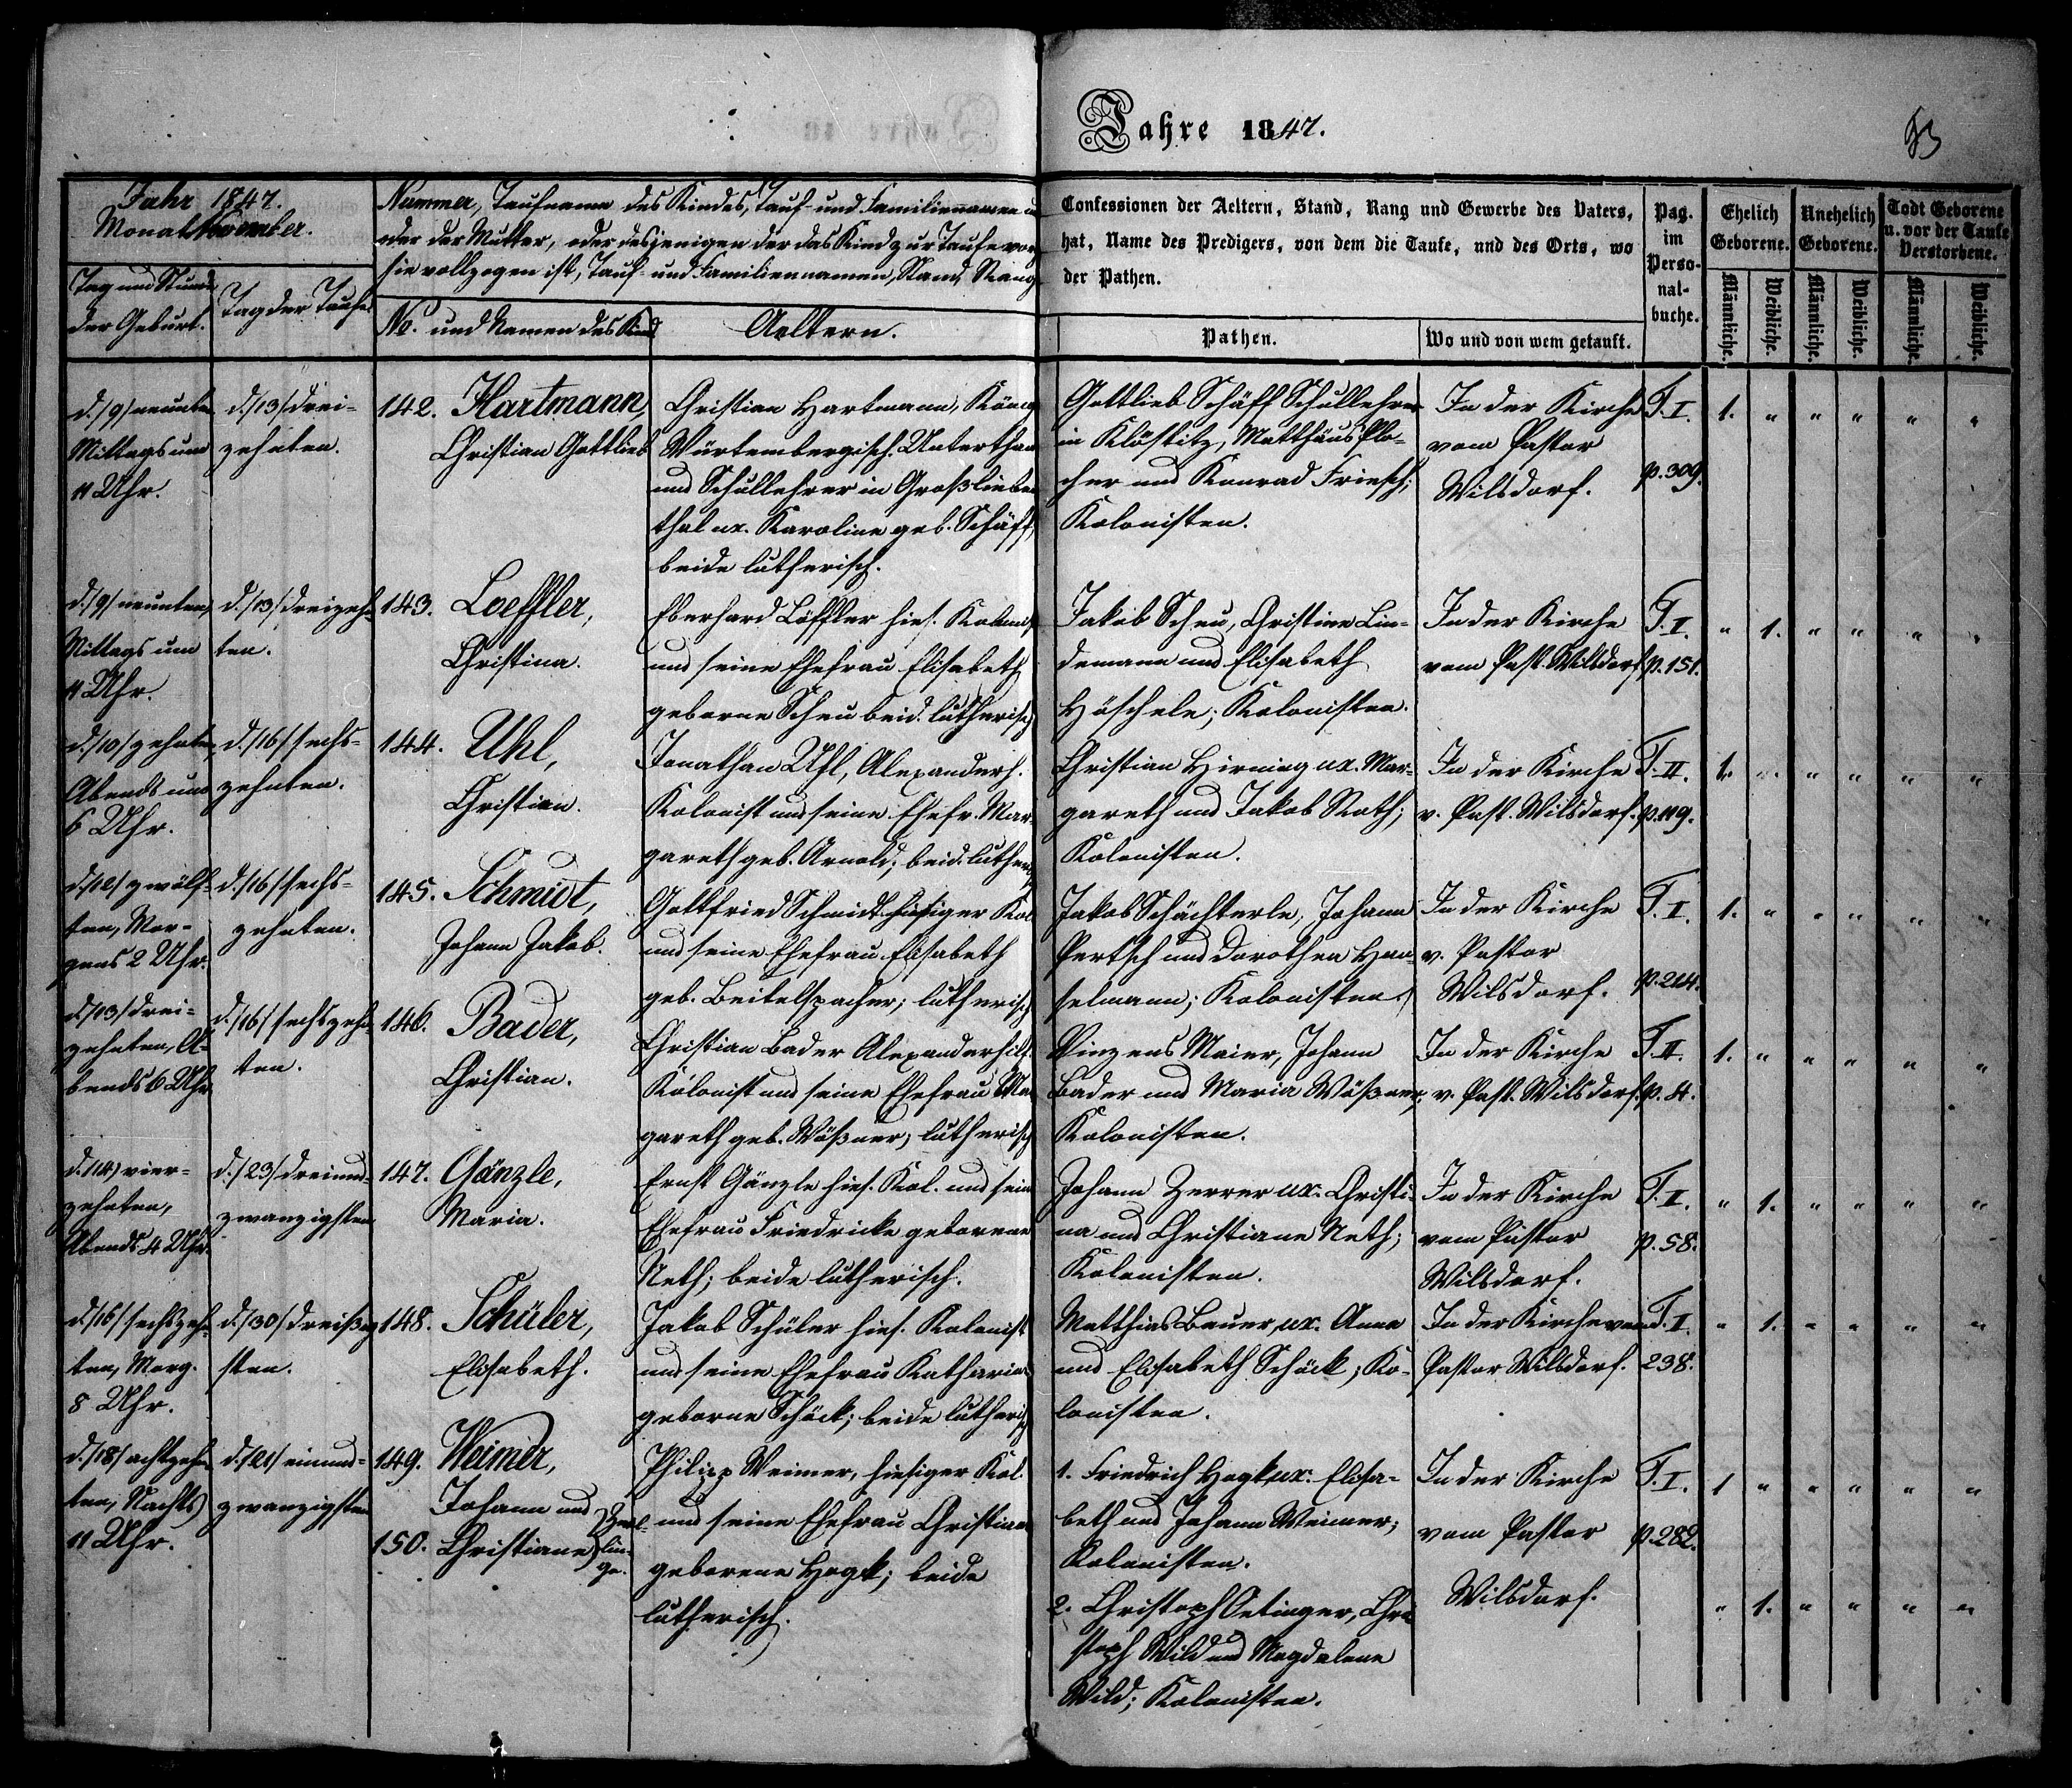 Jahre 1847.
53
Jahr 1847.
Monat November.
Tag und Stunde
der Geburt.
Tag der Taufe.
Nummer, Taufname des Kindes, Tauf- und Familiennamen
oder der Mutter, oder desjenigen der das Kind zur Taufe
sie vollzogen ist, Tauf- und Familiennamen, Stand, Rang
No. und Namen des Kind
Aeltern.
Confessionen der Aeltern, Stand, Rang und Gewerbe des Vaters,
hat, Name des Predigers, von dem die Taufe, und des Orts, wo
der Pathen.
Pathen.
Wo und von wem getauft.
Pag.
im
Perso-
nal-
buche.
Ehelich
Geborene.
Unehelich
Geborene.
Todt Geborene
u. vor der Taufe
Verstorbene.
Männliche.
Weibliche.
Männliche.
Weibliche.
Männliche.
Weibliche.
d./9/ neunten
Mittags um
11 Uhr.
d./13/ drei-
zehnten.
142. Hartmann,
Christian Gottlieb
Christian Hartmann, König
Würtembergisch. Unterthan
und Schullehrer in Großlieben
thal ux. Karoline geb. Schäff,
beide lutherisch.
Gottlieb Schäff Schullehrer
in Klöstitz, Matthäus Plo-
cher und Konrad Friesch;
Kolonisten.
In der Kirche
vom Pastor
Wilsdorf.
T. I.
p. 309.
1. " " " " "
d./9/ neunten,
Mittags um
11 Uhr.
d./13/ dreizehn
ten.
143. Loeffler,
Christina.
Eberhard Löffler hies. Kolonist
und seine Ehefrau Elisabeth
geborne Scheu beid. lutherisch
Jakob Scheu, Christine Lin-
demann und Elisabeth
Höschele; Kolonisten.
In der Kirche
vom Past. Wilsdorf
T. I.
p. 151.
" 1. " " " "
d./10/ zehnten,
Abends um
6 Uhr.
d./16/ sechs-
zehnten.
144. Uhl,
Christian.
Jonathan Uhl, Alexanderh.
Kolonist und seine Ehefr. Mar-
gareth geb. Arnold; beid. luther
Christian Hirning ux. Mar-
gareth und Jakob Roth;
Kolonisten.
In der Kirche
v. Past. Wilsdorf.
T. II.
p. 119.
1. " " " " "
d./12/ zwölf-
ten, Mor-
gens 2 Uhr.
d./16/ sechs-
zehnten.
145. Schmidt,
Johann Jakob.
Gottfried Schmidt hiesiger Kol
und seine Ehefrau Elisabeth
geb. Beitelspacher; lutherisch
Jakob Schächterle, Johann
Pertsch und Dorothea Han-
selmann; Kolonisten.
In der Kirche
v. Pastor
Wilsdorf.
T. I.
p. 214.
1. " " " " "
d./13/ drei-
zehnten, A-
bends 6 Uhr
d./16/ sechszehn
ten.
146. Bader,
Christian.
Christian Bader Alexanderhilf.
Kolonist und seine Ehefrau Mar
gareth geb. Wößner, lutherisch
Vinzens Maier, Johann
Bader und Maria Wößner;
Kolonisten.
In der Kirche
v. Past. Wilsdorf.
T. II.
p. 4.
1. " " " " "
d./14/ vier-
zehnten,
Abends 4 Uhr.
d./23/ dreiund-
zwanzigsten
147. Gänzle,
Maria.
Ernst Gänzle hies. Kol. und sein
Ehefrau Friedricke geborene
Neth; beide lutherisch.
Johann Zerrer ux. Christi-
na und Christiane Neth;
Kolonisten.
In der Kirche
vom Pastor
Wilsdorf.
T. I.
p. 58.
" 1. " " " "
d./16/ sechszehn
ten, Morg.
8 Uhr.
d./30/ dreißig
sten.
148. Schüler,
Elisabeth.
Jakob Schüler hies. Kolonist
und seine Ehefrau Katharina
geborne Schöck; beide lutherisch
Matthias Bauer, ux. Anna
und Elisabeth Schöck; Ko-
lonisten.
In der Kirche vom
Pastor Wilsdorf.
T. I.
238.
" 1. " " " "
d./18/ achtzehn
ten, Nachts
11 Uhr.
d./21/ einund-
zwanzigsten
149. Weimer,
Johann und
150. Christiane
Zwil-
lin-
ge.
Philipp Weimer, hiesiger Kol.
und seine Ehefrau Christiane
geborene Hegk; beide
lutherisch.
1. Friedrich Hegk ux. Elisa-
beth und Johann Weimer;
Kolonisten.
2. Christoph Oetinger, Chri
stoph Wild und Magdalena
Wild; Kolonisten.
In der Kirche
vom Pastor
Wilsdorf.
T. I.
p. 282.
1 " " " " "
" 1. " " " "